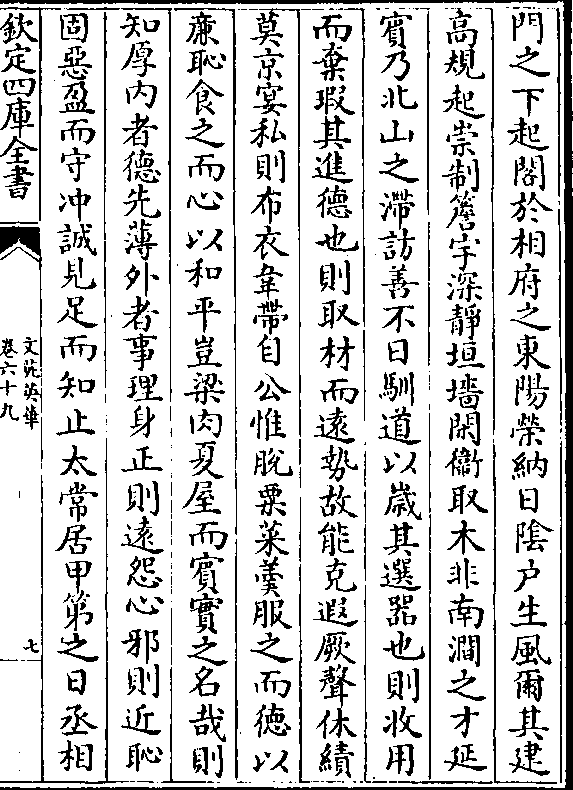 門之下起閣於相府之東陽榮納日陰户生風爾其建
高規起崇制簷宇深靜垣墻閑衞取木非南澗之才延
賓乃北山之滯訪善不日馴道以歳其選噐也則收用
而棄瑕其進徳也則取材而逺勢故能克遐厥聲休績
莫京宴私則布衣韋帶自公惟脱粟菜羮服之而徳以
亷恥食之而心以和平豈梁肉夏屋而賓實之名哉則
知厚内者德先薄外者事理身正則逺怨心邪則近恥
固惡盈而守冲誠見足而知止太常居甲第之日丞相
欽定四庫全書
文苑英華
卷六十九
七